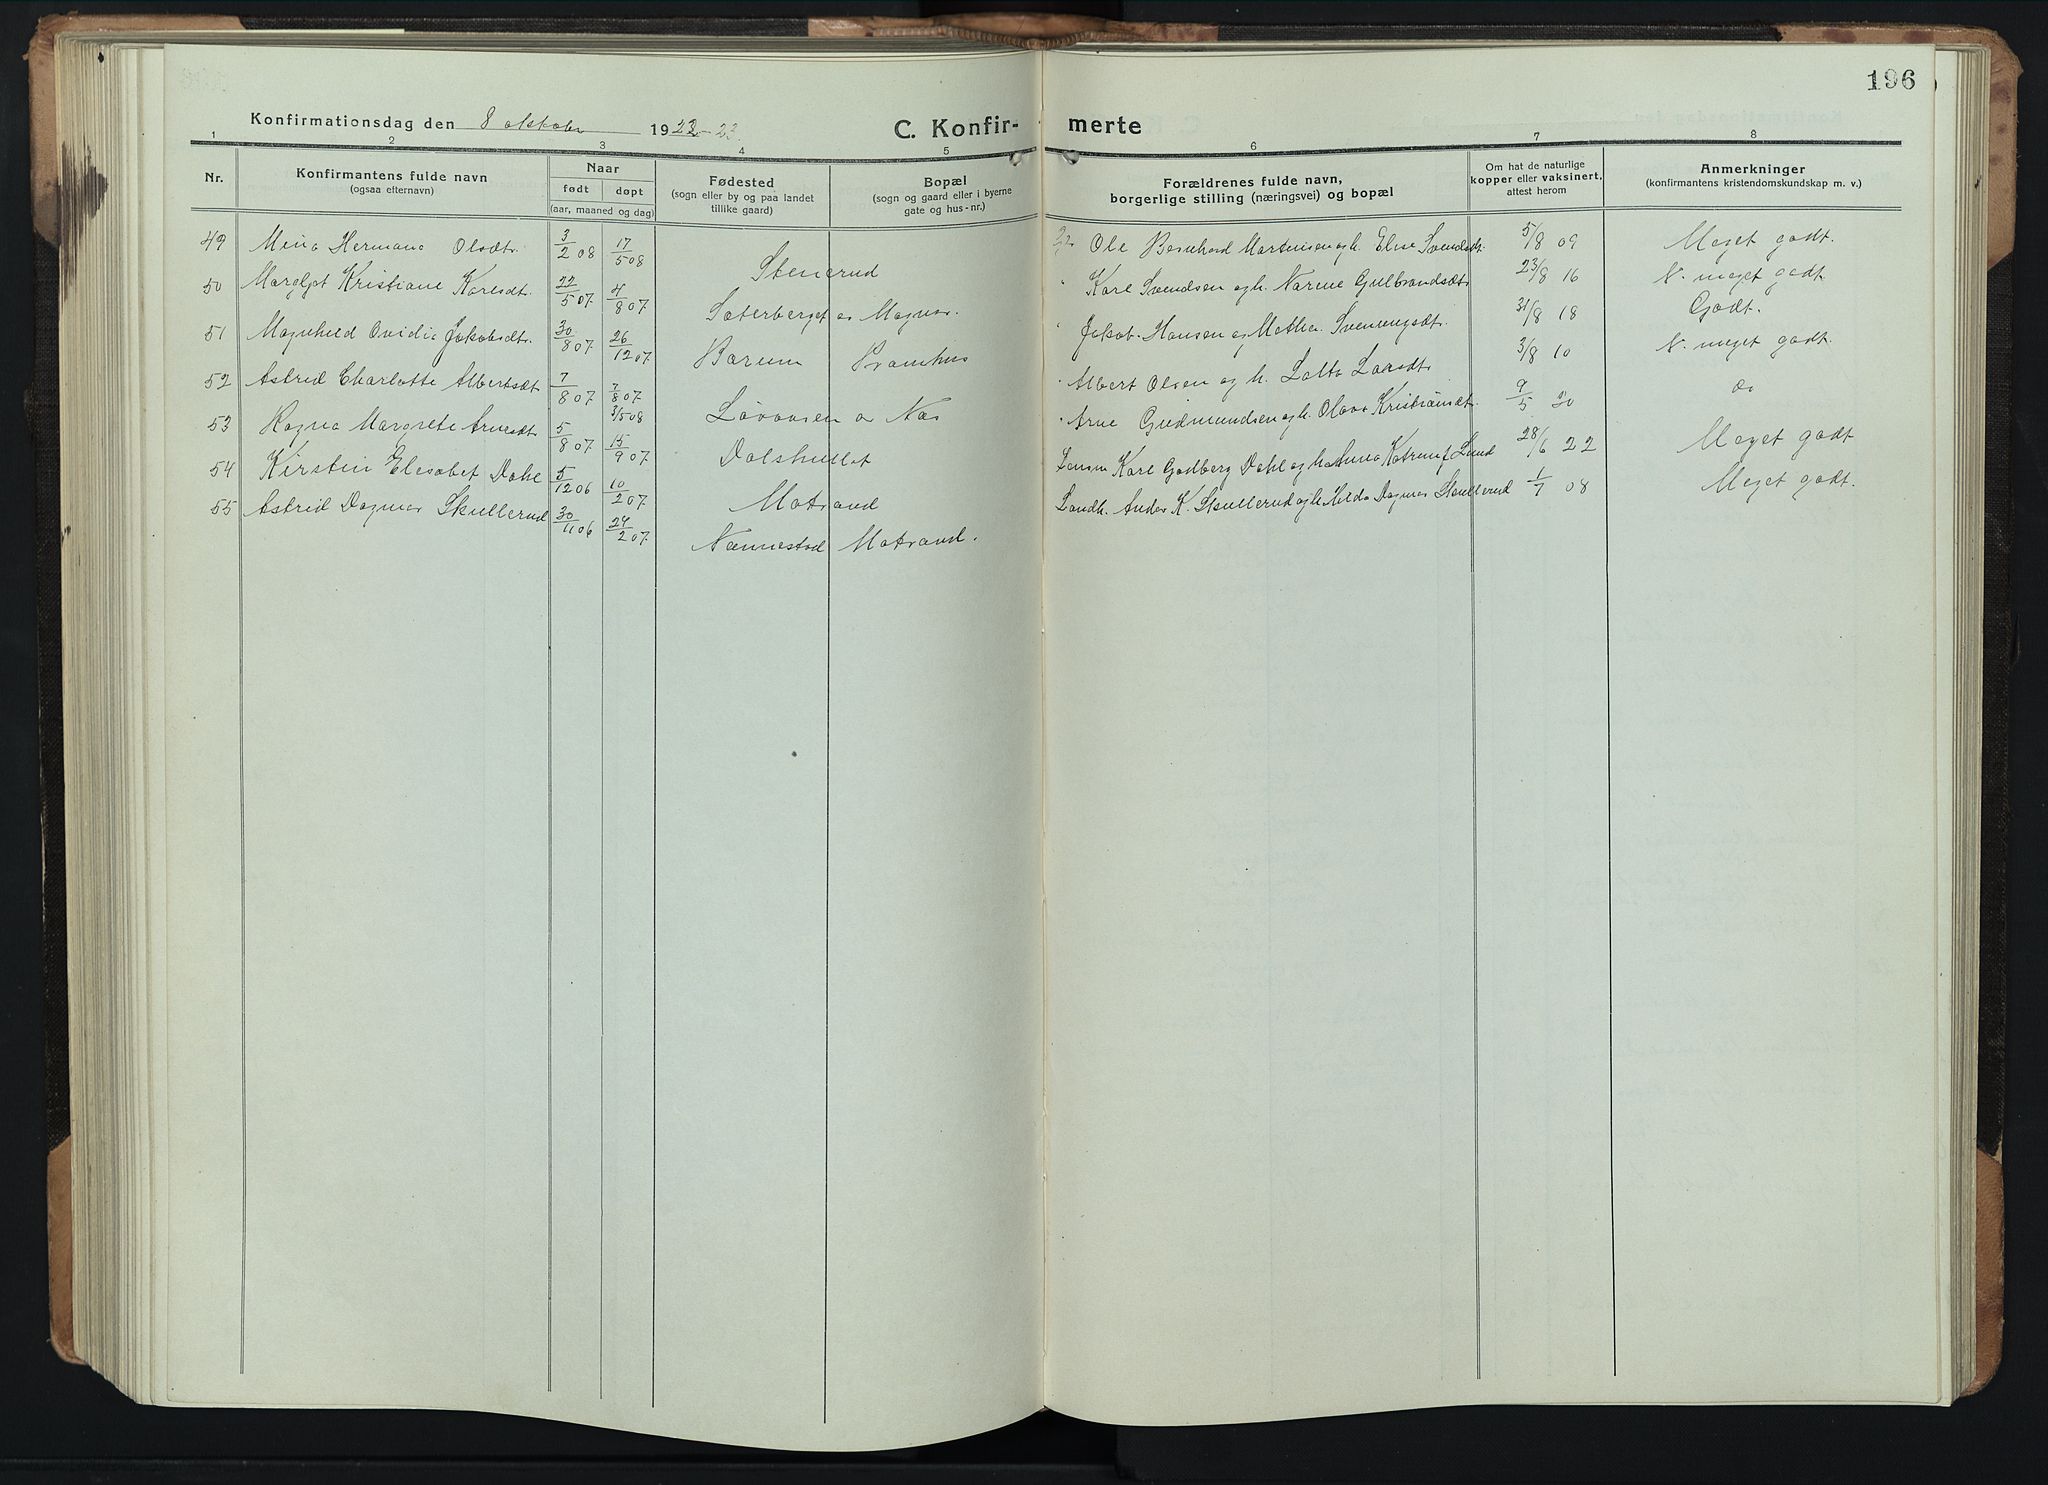 196
Konfirmationsdag den 8 oktober 1922-23.
C. Konfir- merte
1 2 3 4 5 6 7 8
Nr. Konfirmantens fulde navn (ogsaa efternavn) Naar født døpt (aar, maaned og dag) Fødested (sogn eller by og paa landet tillike gaard) Bopæl (sogn og gaard eller i byerne gate og hus-nr.) Forældrenes fulde navn, borgerlige stilling (næringsvei) og bopæl Om hat de naturlige kopper eller vaksinert, attest herom Anmerkninger (konfirmantens kristendomskundskap m. v.)
49 Mina Hermana Olsdtr. 3/2 08 17/5 08 Stenerud Ole Bernhard Martinsen og h. Elise Svendsdtr. 5/8 09 Meget godt.
50 Margot Kristiane Karlsdt. 22/5 07. 4/8 07. Sæterberget Magnor. " Karl Svendsen og h. Narine Gulbrandsdtr. 23/8 16 N. meget godt.
51 Magnhild Ovidia Jakobsdtr. 30/8 07. 26/12 07. Bærum Pramhus " Jakob Hansen og Mathea Svenningsdt. 31/8 18 Godt.
52 Astrid Charlotte Albertsdt 7/8 07. 7/8 07. 3/5 08 Løvaasen Næs " Albert Olsen og h. Lotta Larsdtr 3/8 10 N. meget godt.
53 Ragna Margrete Arnesdtr 5/8 07. 15/9 07. Dalshullet " Arne Gudmundsen og h. Olava Kristiansdt. 9/5 20 do
54 Kirsten Elisabet Dahl 5/12 06 10/2 07. Matrand Karl Godberg Dahl og h. Anna Katrine f. Lund 28/6 22 Meget godt
55 Astrid Dagmar Skullerud 30/11 06 24/2 07. Nannestad Matrand. Landh. Anders K. Skullerud og h. Hilda Dagmar Skullerud 1/7 08 Meget godt.